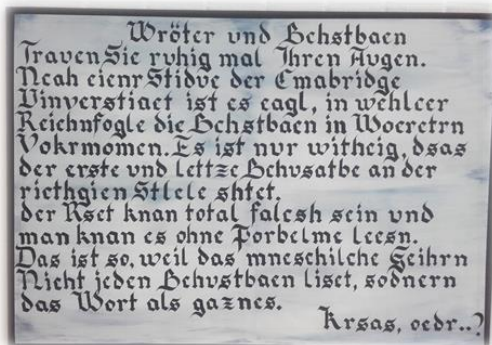 Wröter und Bchstbaen
Trauen Sie ruhig mal Ihren Augen.
Ncah eienr Stidue der Cmabridge
Uinverstiaet ist es eagl, in wehlcer
Reichnfogle die Bchstbaen in Woeretrn
Vokrmomen. Es ist nur witheig, dsas
der erste und lettze Bchusatbe an der
riethgien Stlele shtet.
der Rset knan total falcsh sein und
man knan es ohne Porbelme leesn.
Das ist so, weil das mneschilche Geihrn
Nicht jeden Bchustbaen liset, sodnern
das Wort als gaznes.
Krsas, oedr..?